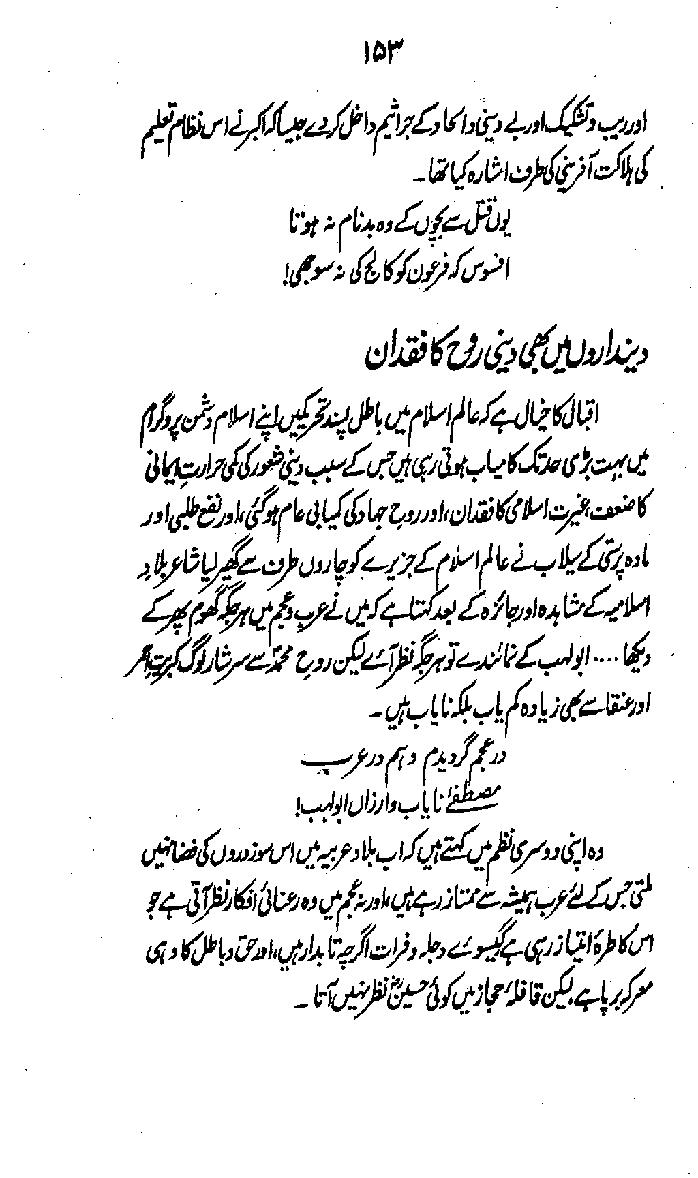 ۱۵۳
اور ریب و تشکیک اور بے دینی و الحاد کے جراثیم داخل کر دے جیسا کہ اکبر نے اس نظام تعلیم
کی ہلاکت آفرینی کی طرف اشارہ کیا تھا۔
یوں قتل سے بچوں کے وہ بدنام نہ ہوتا
افسوس کہ فرعون کو کالج کی نہ سوجھی!
دینداروں میں بھی دینی روح کا فقدان
اقبال کا خیال ہے کہ عالم اسلام میں باطل پسند تحریکیں اپنے اسلام دشمن پروگرام
میں بہت بڑی حد تک کامیاب ہوتی رہی ہیں جس کے سبب دینی شعور کی کمی حرارتِ ایمانی
کا ضعف، غیرت اسلامی کا فقدان، اور روح جہاد کی کمیابی عام ہو گئی، اور نفع طلبی اور
مادہ پرستی کے سیلاب نے عالم اسلام کے جزیرے کو چاروں طرف سے گھیر لیا شاعر بلادِ
اسلامیہ کے مشاہدہ اور جائزہ کے بعد کہتا ہے کہ میں نے عرب و عجم میں ہر جگہ گھوم پھر کے
دیکھا .... ابولہب کے نمائندے تو ہر جگہ نظر آئے لیکن روحِ محمدؐ سے سرشار لوگ کبریتِ احمر
اور عنقا سے بھی زیادہ کم یاب بلکہ نایاب ہیں۔
در عجم گردیدم و ہم در عرب
مصطفےٰؐ نایاب و ارزاں ابولہب!
وہ اپنی دوسری نظم میں کہتے ہیں کہ اب بلاد عربیہ میں اس سوز دروں کی فضا نہیں
ملتی جس کے لئے عرب ہمیشہ سے ممتاز رہے ہیں، اور نہ عجم میں وہ رعنائی افکار نظر آتی ہے جو
اس کا طرۂ امتیاز رہی ہے گیسوئے دجلہ و فرات اگرچہ تابدار ہیں، اور حق و باطل کا وہی
معرکہ برپا ہے، لیکن قافلۂ حجاز میں کوئی حسینؓ نظر نہیں آتا۔